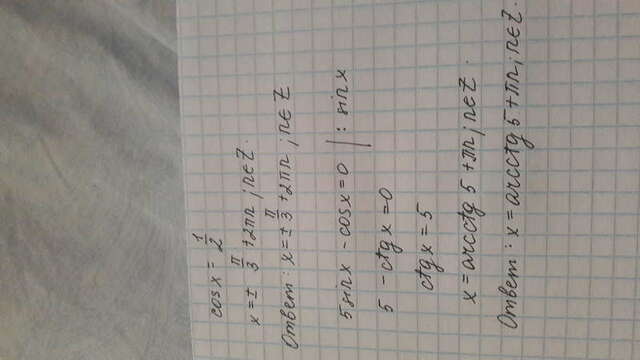 cosx = 1/2
x = ± π/3 + 2πn ; n∈Z.
Ответ: x = ± π/3 + 2πn ; n∈Z
5sinx - cosx = 0 | : sinx
5 - ctgx = 0
ctgx = 5
x = arcctg 5 + πn ; n∈Z.
Ответ: x = arcctg 5 + πn ; n∈Z.